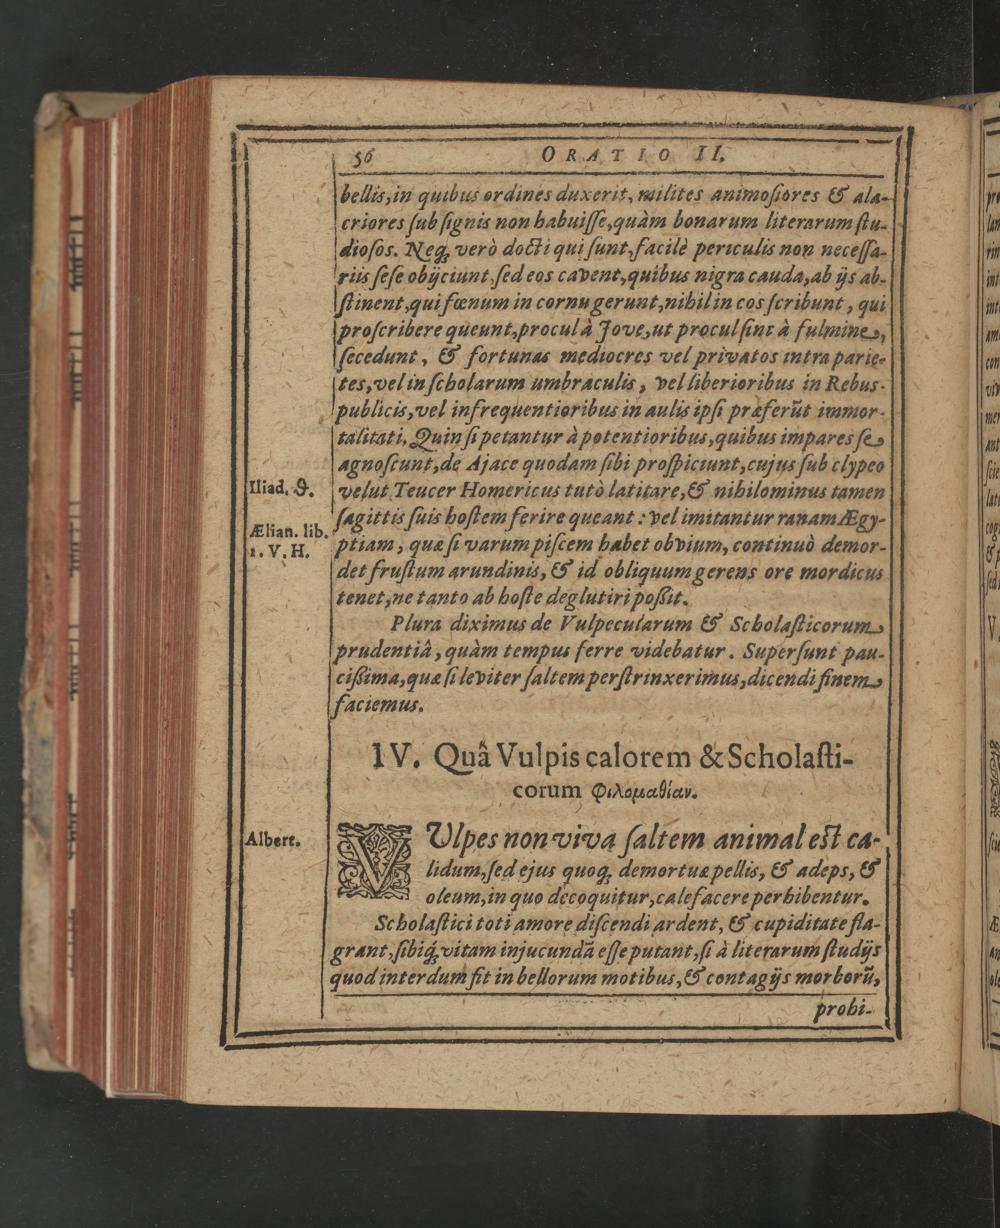 56 ORATIO II.
bellis, in quibus ordines duxerit, milites animoſiores & ala-
criores ſub ſignis non habuiſſe, quàm bonarum literarum ſtu-
dioſos. Neq; verò docti qui ſunt, facilè periculis non neceſſa-
riis ſeſe obijciunt, ſed eos cavent, quibus nigra cauda, ab ijs ab-
ſtinent, qui fœnum in cornu gerunt, nihil in eos ſcribunt, qui
proſcribere queunt, procul à Jove, ut procul ſint à fulmine,
ſecedunt, & fortunas mediocres vel privatos intra parie-
tes, vel in ſcholarum umbraculis, vel liberioribus in Rebus-
publicis, vel infrequentioribus in aulis ipſi præferūt immor-
talitati. Quin ſi petantur à potentioribus, quibus impares ſe
agnoſcunt, de Ajace quodam ſibi proſpiciunt, cujus ſub clypeo
Iliad. ϑ.
velut Teucer Homericus tutò latitare, & nihilominus tamen
ſagittis ſuis hoſtem ferire queant: vel imitantur ranam Ægy-
Ælian. lib.
1. V. H.
ptiam, quæ ſi varum piſcem habet obvium, continuò demor-
det fruſtum arundinis, & id obliquum gerens ore mordicus
tenet, ne tanto ab hoſte deglutiri poßit.
Plura diximus de Vulpecularum & Scholaſticorum
prudentiâ, quàm tempus ferre videbatur. Superſunt pau-
cißima, quæ ſi leviter ſaltem perſtrinxerimus, dicendi finem
faciemus.
IV. Quâ Vulpis calorem & Scholaſti-
corum Φιλομαθίαν.
Albert.
VUlpes non viva ſaltem animal eſt ca-
lidum, ſed ejus quoq; demortuæ pellis, & adeps, &
oleum, in quo decoquitur, calefacere perhibentur.
Scholaſtici toti amore diſcendi ardent, & cupiditate fla-
grant, ſibiq; vitam injucundā eſſe putant, ſi à literarum ſtudijs
quod interdum fit in bellorum motibus, & contagijs morborū,
probi-